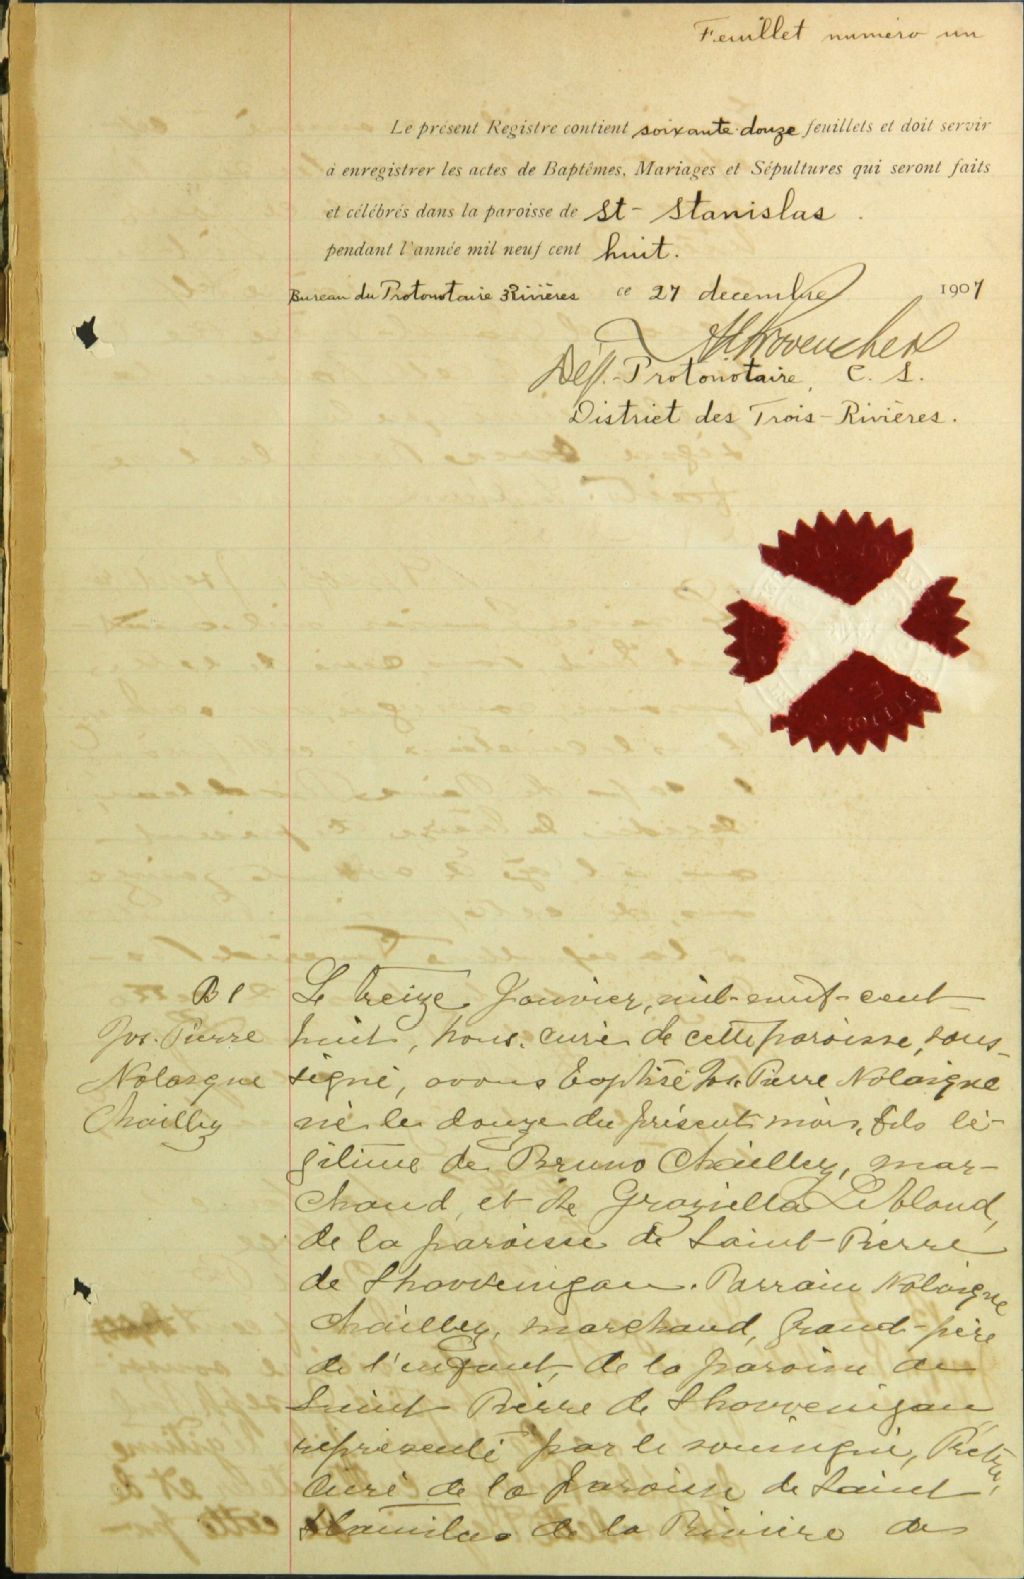 Feuillet numéro un
Le présent Registre contient soixante-douze feuillets et doit servir
à enregistrer les actes de Baptêmes, Mariages et Sépultures qui seront faits
et célébrés dans la paroisse de St-Stanislas.
pendant l'année mil neuf cent huit.
Bureau du Protonotaire 3Rivières ce 27 decembre 1907
Dép.-Protonotaire, C. S.
District des Trois-Rivières.
B 1
Jos. Pierre
Nolasque
Chailley
Le treize Janvier, mil-neuf-cent
huit, nous, curé de cette paroisse, sous-
signé, avons baptisé Jos. Pierre Nolasque
né le douze du présent mois, fils lé-
gitime de Bruno Chailley, mar-
chand, et de Graziella Leblond,
de la paroisse de Saint-Pierre
de Shawenigan. Parrain Nolasque
Chailley, marchand, grand-père
de l'enfant, de la paroisse de
Saint Pierre de Shawenigan
représenté par le soussigné, Prêtre,
Curé de la paroisse de Saint
Stanislas de la Rivière des